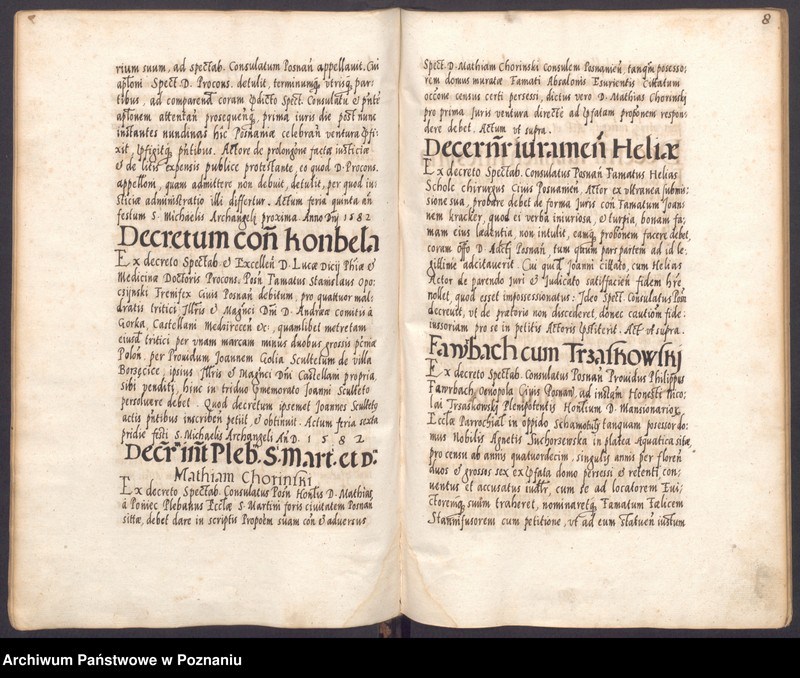 rium suum, ad spectab. Consulatum Posnań appellavit. Cui
aplōni Spect D. Procons. detulit, terminumq́ vtrisq́, par-
tibus, ad comparenđ coram ꝑdicto Spect. Consulatu & pñte
aplōnem attentań prosequenđ, prima iuris die post nunc
instantes nundinas hic Posnaniæ celebrań ventura ꝑfi-
xit, ꝑfigitq́ pñtibus. Actore de prolongōne factæ iusticiæ
& de litis expensis publice protestante, eo quod D. Procons.
appellōni, quam admittere non debuit, detulit, per quod iu-
sticiæ administratio illi differtur. Actum feria quinta añ
festum S. Michaelis Archangeli proxima Anno Dñi 1582
Decretum con̄ Konbela
Ex decreto Spectab. & Excelleń D. Lucæ Dicij Phiæ &
Medicinæ Doctoris Procons. Posń Famatus Stanislaus Opo-
czijnski Frenifex Ciuis Posnań debitum, pro quatuor mal-
dratis tritici Illris & Magnci Dñi D. Andreæ comitis à
Gorka, Castellani Medzireceń &c:, quamlibet metretam
eiusđ tritici per vnam marcam minus duobus grossis pecuniæ
Polon̄. per Prouidum Joannem Golia Scultetum de villa
Borzęcice, ipsius Illris & Magnci Dñi Castellani propria,
sibi venditi, hinc in triduo ꝑmemorato Joanni Sculteto
persoluere debet. Quod decretum ipsemet Joannes Scultetꝯ
actis pñtibus inscribeń petijt & obtinuit. Actum feria sexta
pridie festi S. Michaelis Archangeli Añ D. 1582
Decr̄ int̄ Pleb. S. Mart. et D:
Mathiam Chorinski
Ex decreto Spectab. Consulatus Posń Honlis D. Mathias
à Poniec Plebanus Ecclæ S. Martini foris ciuitatem Posnań
sittæ, debet dare in scriptis Propōem suam con̄ & aduersus
8
Spect. D. Mathiam Chorinski Consulem Posnanień, tanq̃m posesso-
rem domus muratæ Famati Absalonis Esurientis Citatum
occōne census certi persessi, dictus vero D. Mathias Chorinskj
pro prima Juris ventura directe ad ꝑfatam propōnem respon-
dere debet. Actum vt supra.
Decer̄nr̄ iuramen̄ Heliæ
Ex decreto Spectab. Consulatus Posnań Famatus Helias
Schole chirurgus Ciuis Posnanień, Actor ex vltranea submis-
sione sua, probare debet de forma Juris con̄ Famatum Joan-
nem kracker, quod ei verba iniuriosa, & turpia, bonam fa-
mam eius lædentia, non intulit, eamq́, probōnem facere debet,
coram offo D. Adcti Posnań, tum quum pars partem ad id le-
gittime adcitauerit. Cui quiđ Joanni citato, cum Helias
Actor de parendo Juri & Judicato satisfacień fidem hr̄e
nollet, quod esset impossessionatus: Ideo Spect. Consulatus Posń
decreuit, vt de prætorio non discederet, donec cautiōn fide-
iussoriam pro se in petitis Actoris ꝑstiterit. Act. vt supra.
Fawrbach cum Trzaskowskj
Ex decreto Spectab. Consulatus Posnań Prouidus Philippus
Fawrbach, Oenopola Ciuis Posnań, ad instañ Honesti Nico-
lai Trzaskowskj Plenipotentis Honlium D. Mansionarioꝝ
Ecclæ Parrochial. in oppido Schamotuly tanquam posessor do-
mus Nobilis Agnetis Suchorzewska in platea Aquatica sitæ,
pro censu ab annis quatuordecim, singulis annis per floreń
duos & grosos sex ex ꝑfata domo persessi & retenti, con-
uentus et accusatus iudlr, cum se ad locatorem Eui-
ctoremq́, suum traheret, nominaretq́, Famatum Falicem
Stannifusorem cum petitione, vt ad eum statueń iustum
Archiwum Państwowe w Poznaniu